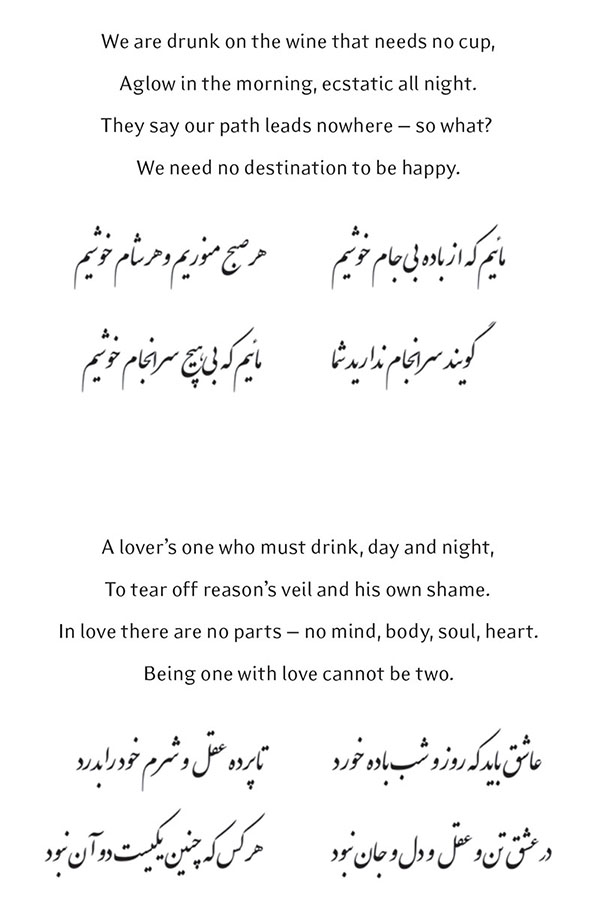 We are drunk on the wine that needs no cup,
Aglow in the morning, ecstatic all night.
They say our path leads nowhere – so what?
We need no destination to be happy.
مائیم که از باده بی جام خوشیم
هر صبح منوریم و هر شام خوشیم
گویند سرانجام ندارید شما
مائیم که بی هیچ سرانجام خوشیم
A lover’s one who must drink, day and night,
To tear off reason’s veil and his own shame.
In love there are no parts – no mind, body, soul, heart.
Being one with love cannot be two.
عاشق باید که روز و شب باده خورد
تا پرده عقل و شرم خود را بدرد
در عشق تن و عقل و دل و جان نبود
هر کس که چنین یکیست دو آن نبود